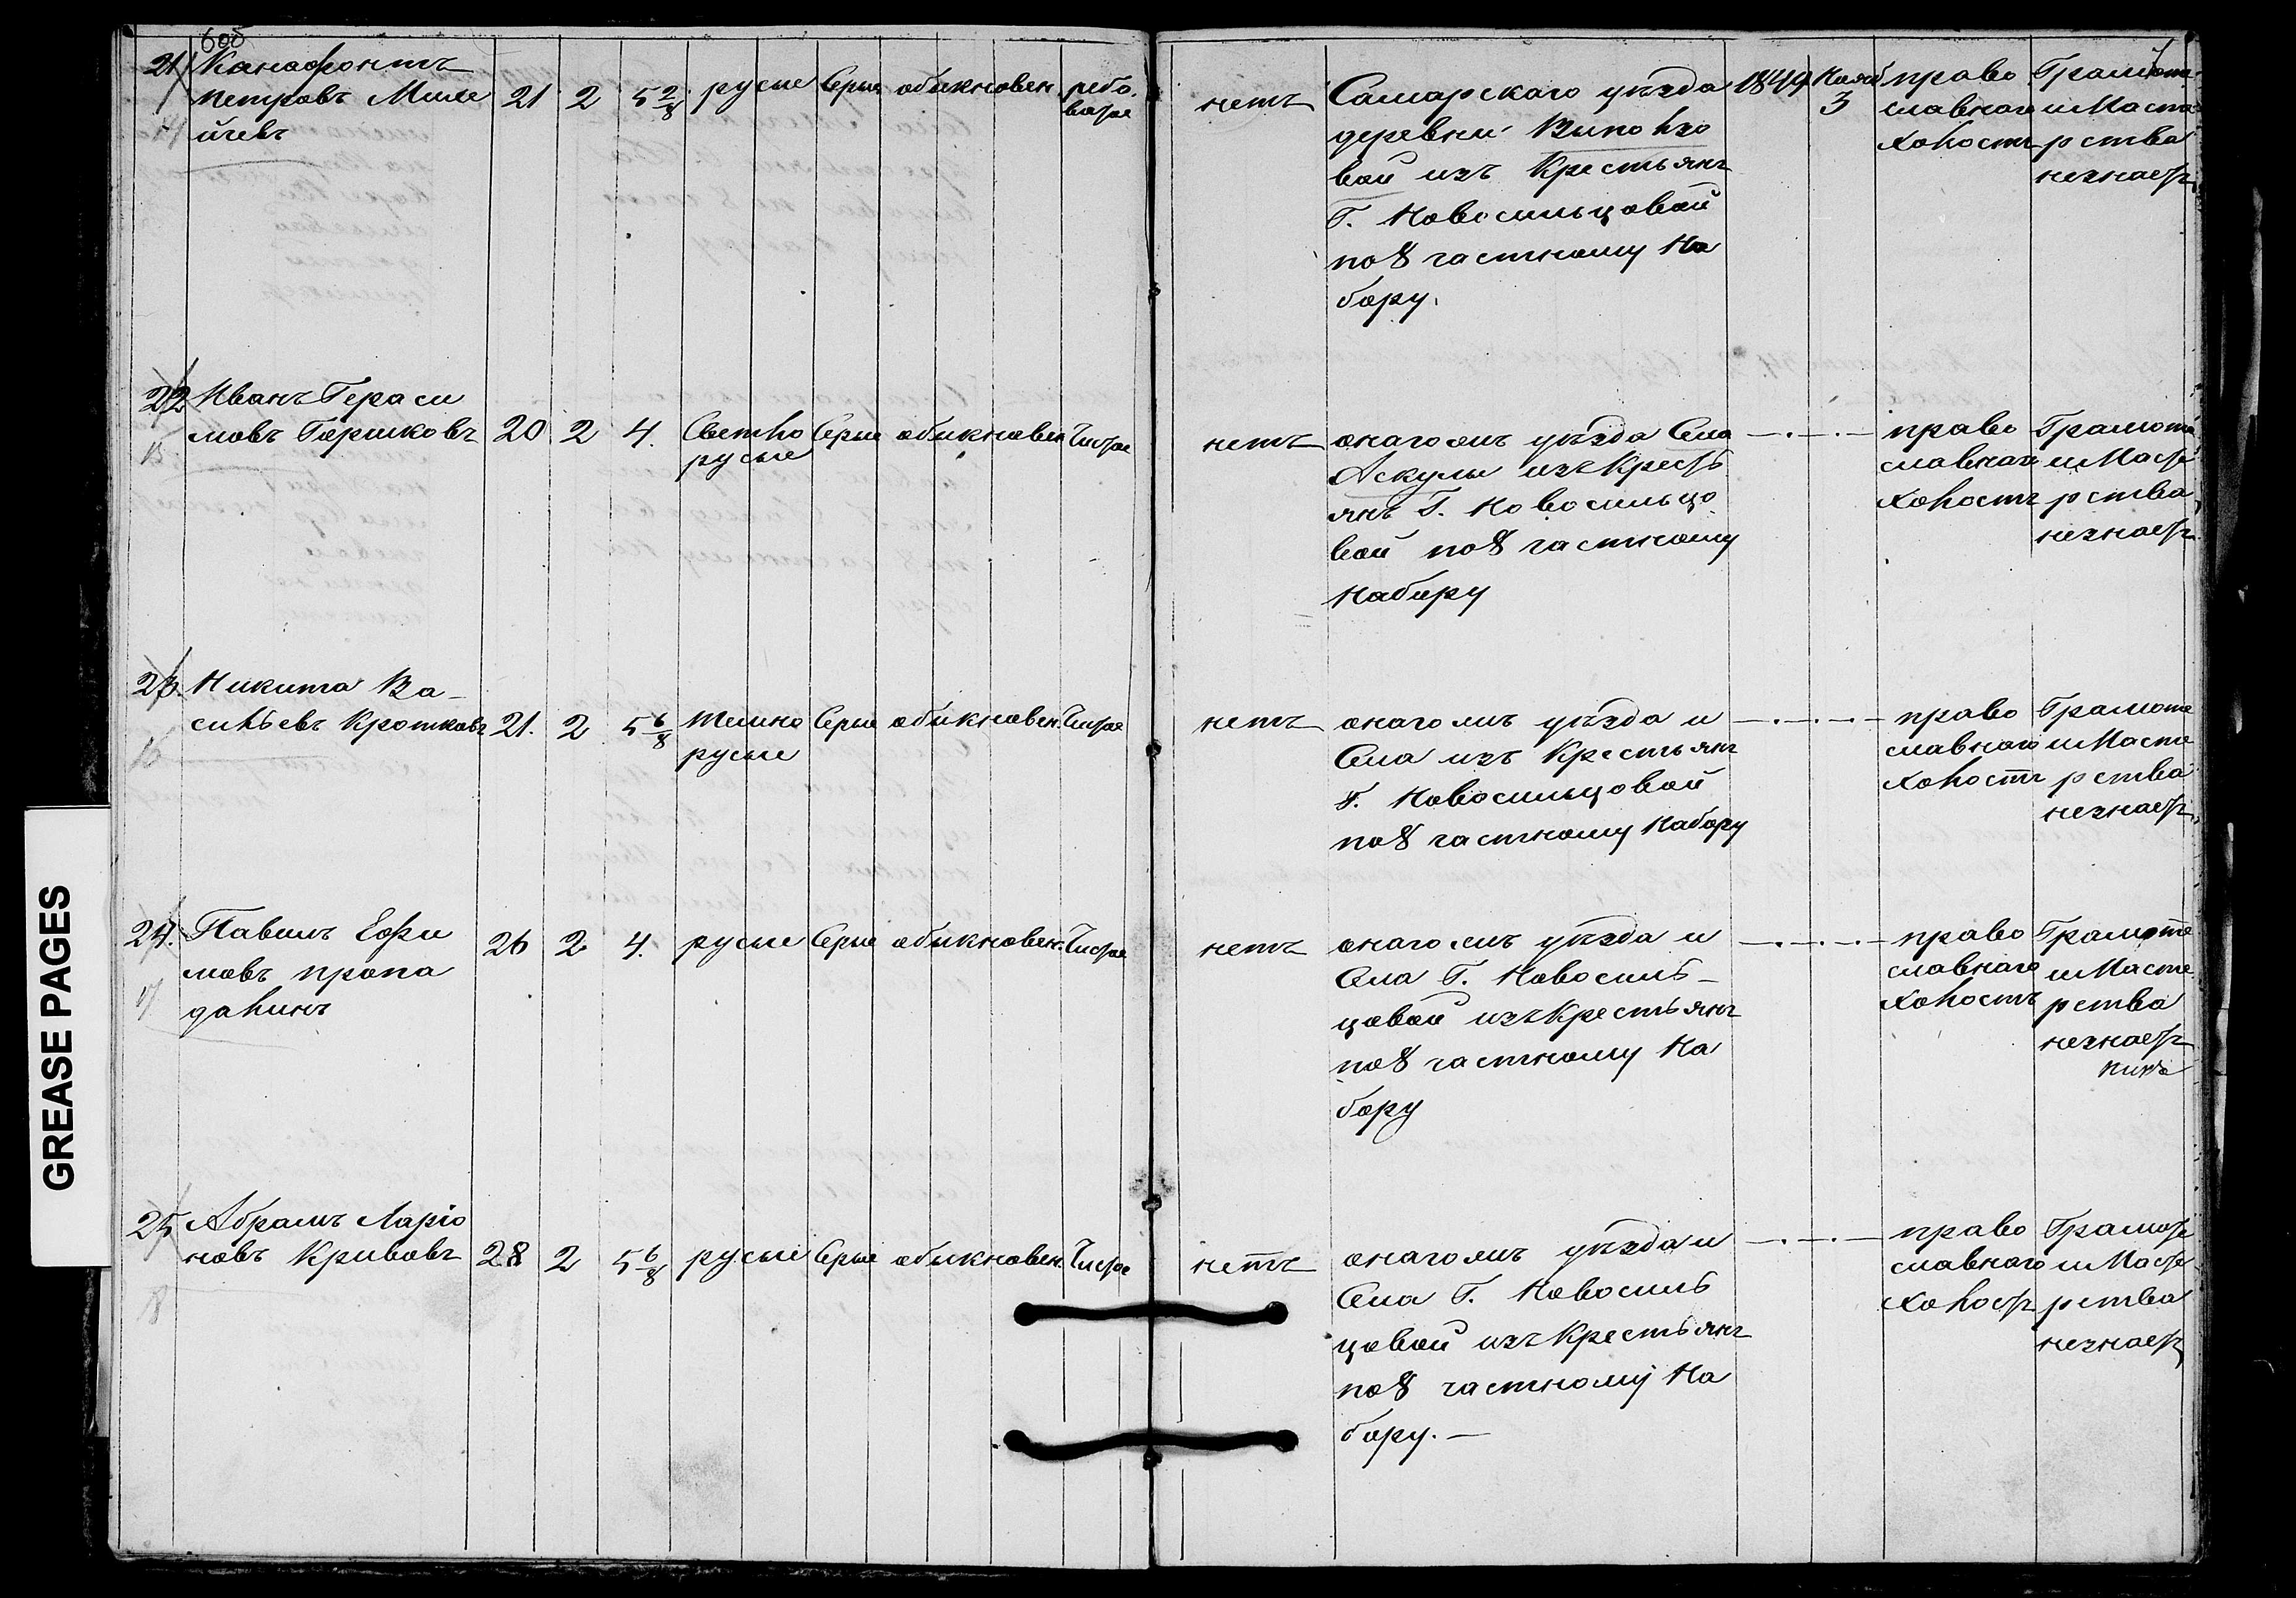 GREASE PAGES
21 Канафонтъ
Петровъ Миле
йчевъ
21 2 5 2/8 русые Серые обыкновен. рябо
ватое
нетъ
Самарскаго уѣзда
деревни Выползо
вой изъ Крестьянъ
Г. Новосильцовой
по 8 частному На
бору.
1849 Нояб
3
право
славнаго
холостъ
Грамоте
и Масте
рства
незнаетъ
22 Иванъ Гераси
мовъ Горшковъ
15
20 2 4. Светло
русые
Серые обыкновен Чистое
нетъ
онагожъ уѣзда Села
Аскулы изъ Кресть
янъ Г. Новосильцо
вой по 8 частному
Набору
право
славнаго
холостъ
Грамоте
и Масте
рства
незнаетъ
23. Никита Ва-
сильевъ Кротковъ
16
21. 2 5 6/8 темно
русые
Серые обыкновен. Чистое
нетъ
онагожъ уѣзда и
Села изъ Крестьянъ
Г. Новосильцовой
по 8 частному Набору
право
славнаго
холостъ
Грамоте
и Масте
рства
незнаетъ
24. Павелъ Ефи
мовъ Пропа
далинъ
17
26 2 4. русые Серые обыкновен. Чистое
нетъ
онагожъ уѣзда и
Села Г. Новосиль-
цовой изъ Крестьянъ
по 8 частному На
бору
право
славнаго
холостъ
Грамоте
и Масте
рства
незнаетъ
25 Абрамъ Ларiо
новъ Кривовъ
18
28 2 5 6/8 русые Серые обыкновен. Чистое
нетъ
онагожъ уѣзда и
Села Г. Новосиль
цовой изъ Крестьянъ
по 8 частному На
бору.-
право
славнаго
холостъ
Грамоте
и Масте
рства
незнаетъ